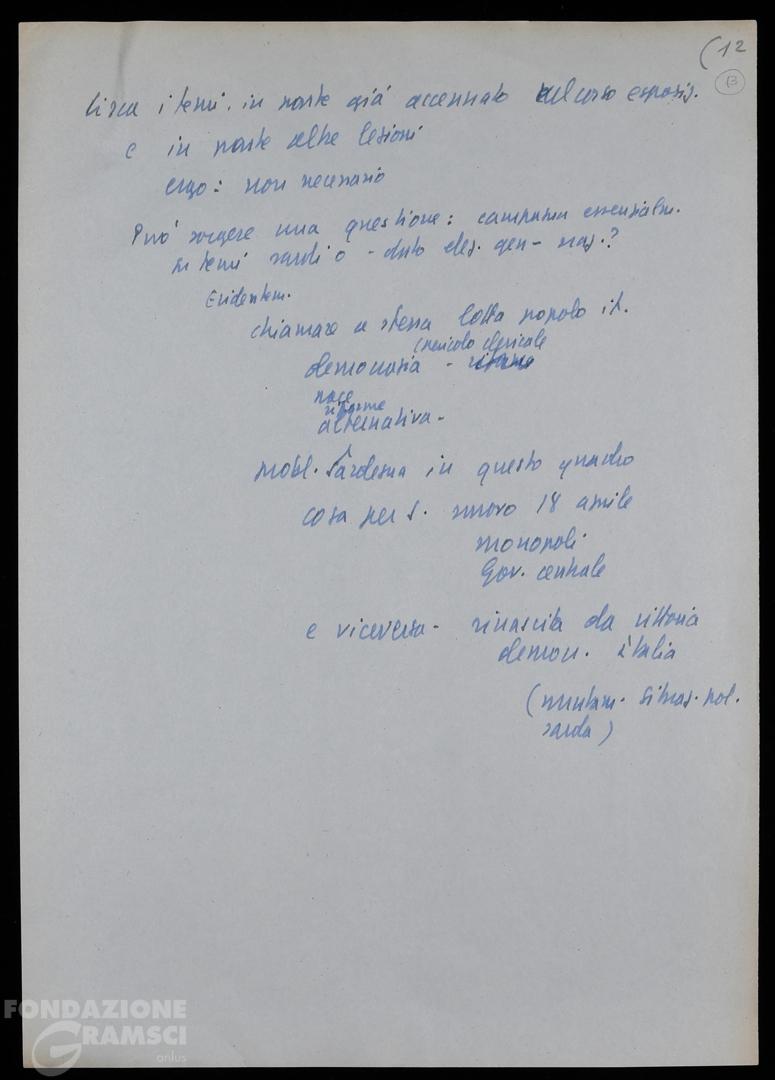 (12
13
circa i temi. in parte già accennato nel corso esposiz.
e in parte altre lezioni
ergo: non necessario
Può sorgere una questione: campagna essenzialm.
su temi sardi o - dato elez. gen - naz.?
Evidentem.
chiamare a stessa lotta popolo it.
(pericolo clericale
democrazia -
pace
riforme
alternativa -
probl. Sardegna in questo quadro
cosa per S. nuovo 18 aprile
monopoli
Gov. centrale
e viceversa - rinascita da vittoria
democr. Italia
(mutam. situaz. pol.
sarda)
FONDAZIONE
GRAMSCI
onlus